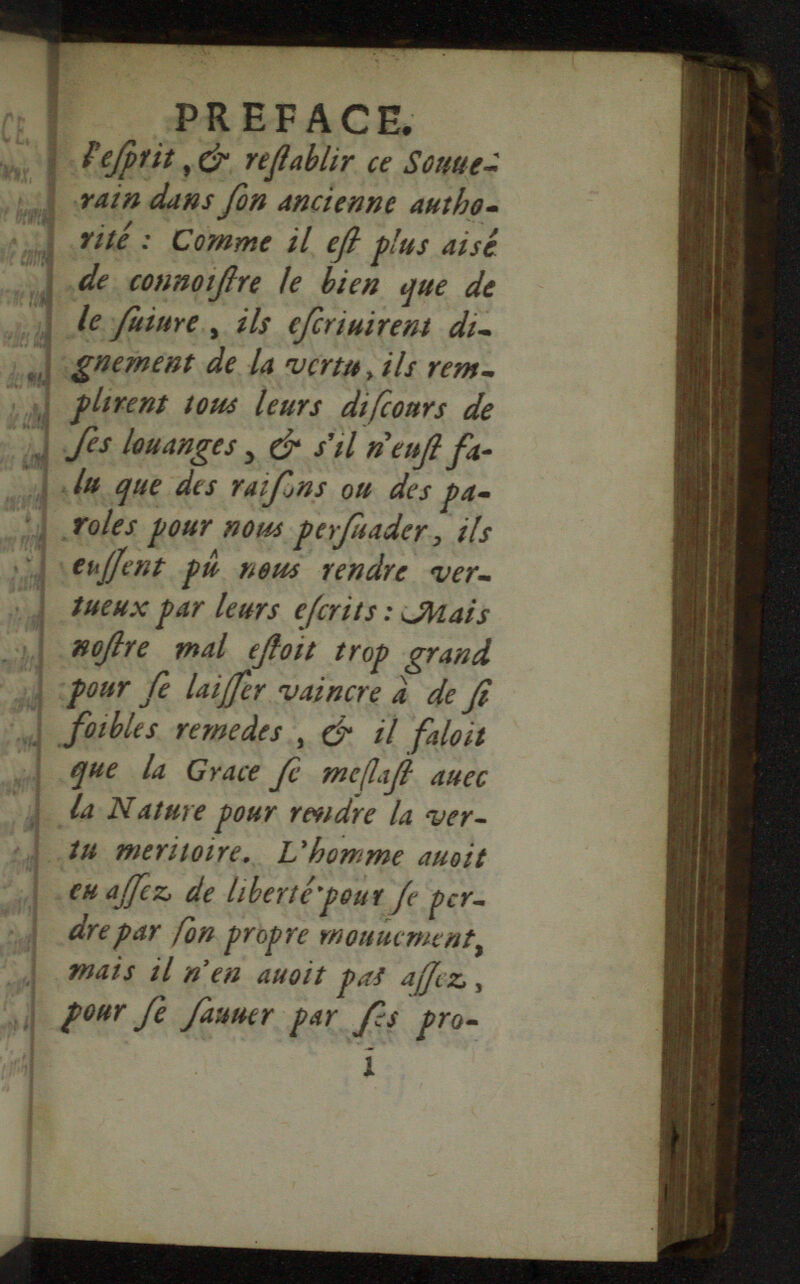 PREFACE.
l'eſprit, & reſtablir ce Souue-
rain dans ſon ancienne autho-
rité : Comme il eſt plus aisé
de connoiſtre le bien que de
le ſuiure, ils eſcriuirent di-
gnement de la vertu, ils rem-
plirent tous leurs diſcours de
ſes louanges, & s'il n'euſt fa-
lu que des raiſons ou des pa-
roles pour nous perſuader, ils
euſſent pû nous rendre ver-
tueux par leurs eſcrits : Mais
noſtre mal eſtoit trop grand
pour ſe laiſſer vaincre à de ſi
foibles remedes, & il faloit
que la Grace ſe meſlaſt auec
la Nature pour rendre la ver-
tu meritoire. L'homme auoit
eu aſſez de liberté pour ſe per-
dre par ſon propre mouuement,
mais il n'en auoit pas aſſez,
pour ſe ſauuer par ſes pro-
i